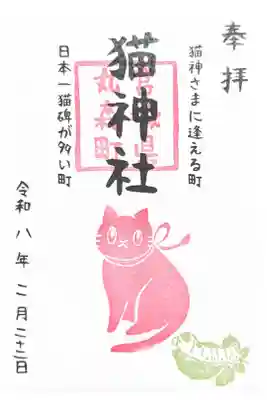 奉拝
猫神さまに逢える町
宮城県
丸森町
猫神社
日本一猫碑が多い町
令和八年二月二十二日